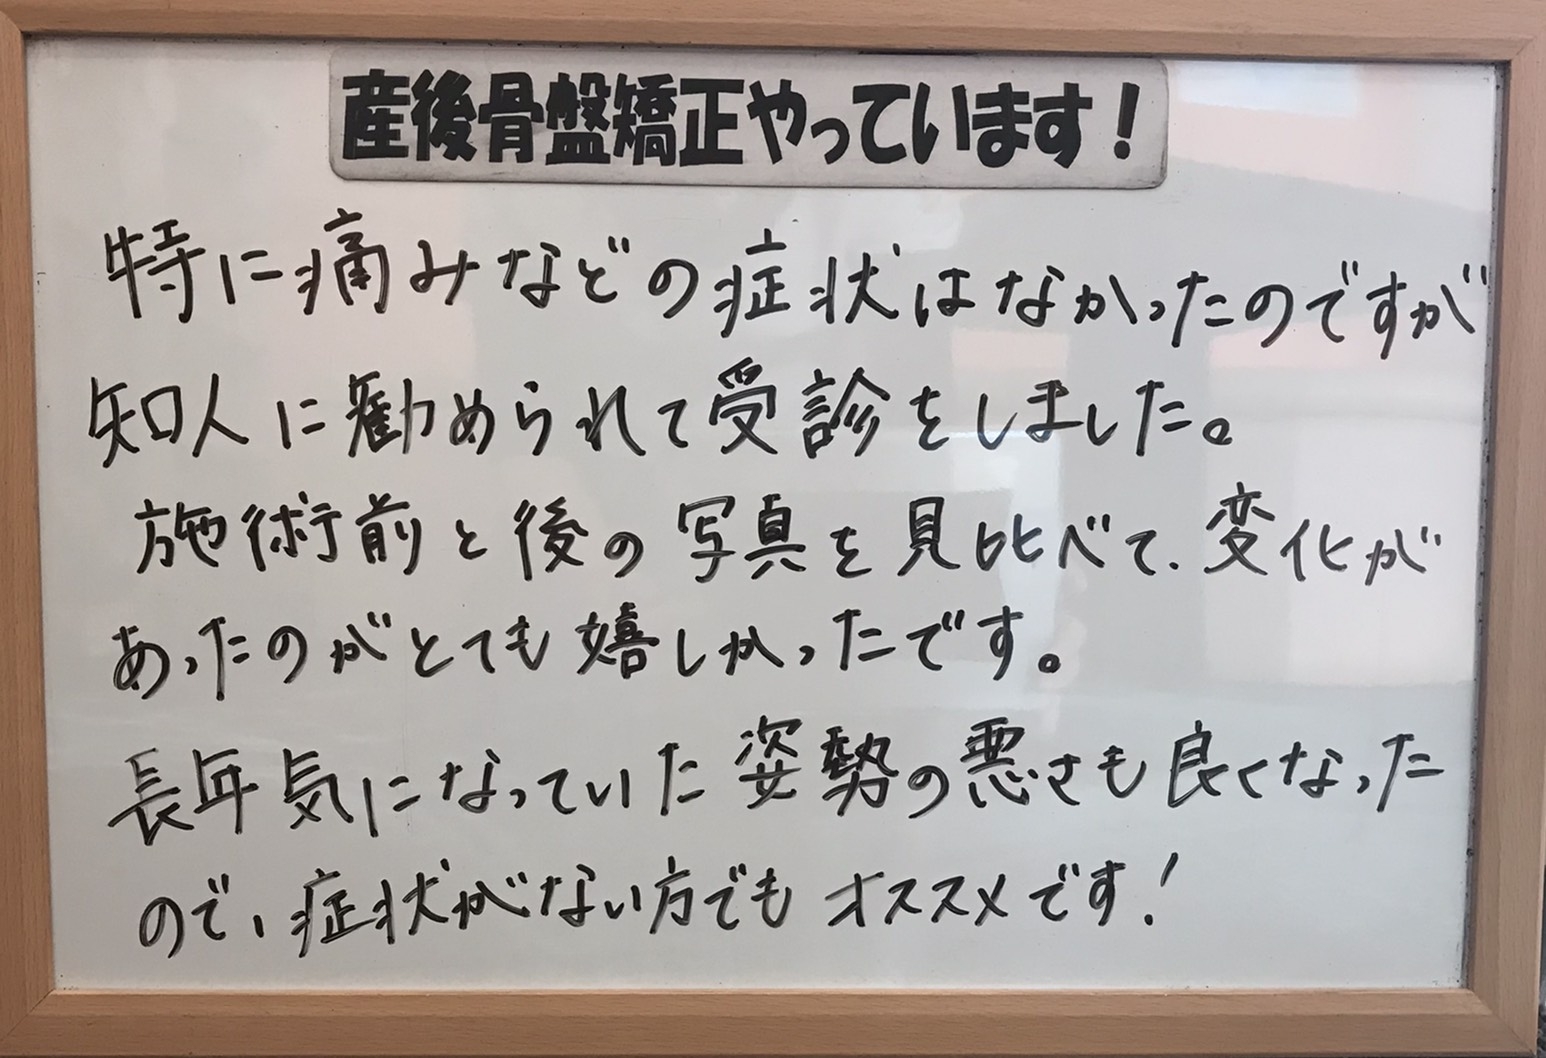 産後骨盤矯正やっています！
特に痛みなどの症状はなかったのですが
知人に勧められて受診をしました。
施術前と後の写真を見比べて、変化が
あったのがとても嬉しかったです。
長年気になっていた姿勢の悪さも良くなった
ので、症状がない方でもオススメです！